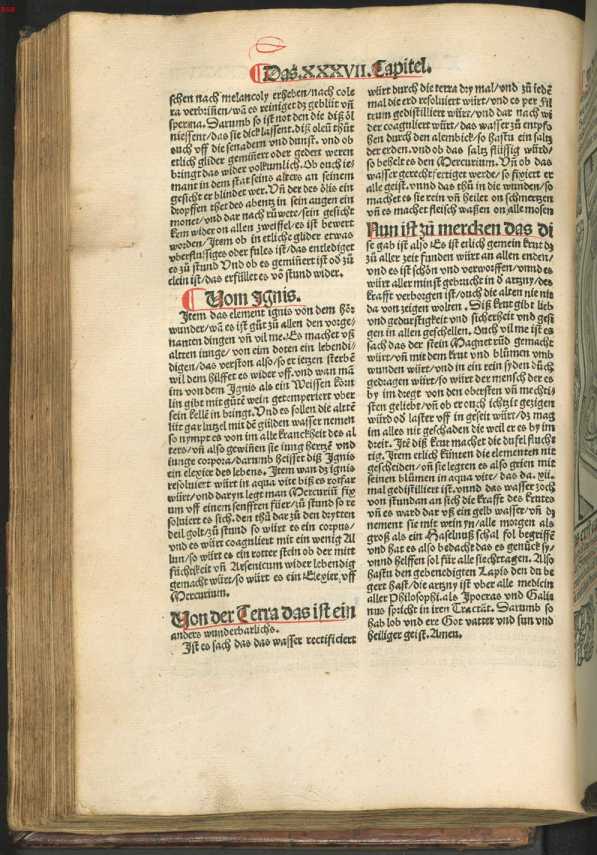 Das .XXXVII. Capitel.
schen nach melancoly erheben/nach cole
ra verbriñen/wã es reiniget dz geblüt vñ
sperma. Darumb so ist not den die diß öl
niessent/das sie dick lassent. diß oleũ thũt
ouch vff die senadern vnd dunst. vnd ob
etlich glider gemiñert oder gedert weren
bringt das wider volkumlich. Ob ouch ie-
mant in dem stat seins alters an seinem
gesicht er blindet wer. Vñ der des ölis ein
dropffen thet des abentz in sein augen ein
monet/vnd dar nach rüwete/sein gesicht
kem wider on allen zweiffel/es ist bewert
worden/Item ob in etliche glider etwas
vberflüssiges oder fules ist/das entlediget
es zũ stund Vnd ob es gemiñert ist od zũ
clein ist/das erfüllet es võ stund wider.
Vom Ignis.
Item das element ignis von dem hör
wunder/wã es ist gũt zũ allen den vorge-
nanten dingen vñ vil me. Es machet vß
alten iunge/von eim doten ein lebendi-
digen/das verston also/so er ietzen sterbẽ
wil dem hilffet es wider vff. vnd wan mã
im von dem Ignis als ein Weissen körn
lin gibt mit gũtẽ wein getemperiert vber
sein kellẽ in bringt. Vnd es sollen die altẽ
lüt gar lutzel mit dẽ gülden wasser nemen
so nympt es von im alle kranckheit des al
ters/vñ also gewinen sie iung hertzẽ vnd
iunge corpora/darumb heisset diß Ignis
ein elexier des lebens. Item wan dz ignis
resoluiert würt in aqua vite biß es rotfar
würt/vnd daryn legt man Mercuriũ fix
um vff einem senfften füer/zũ stund so re
soluiert es sich. den thũ dar zũ den drytten
deil golt/zũ stund so würt es ein corpus/
vnd es würt coaguliert mit ein wenig Al
lun/so würt es ein rotter stein ob der mitt
füchtikeit vñ Arsenicum wider lebendig
gemacht würt/so würt es ein Elexier vff
Mercurium.
Von der Terra das ist ein
anders wunderbarlichs.
Ist es sach das das wasser rectificiert
würt durch die terra dry mal/vnd zũ iedẽ
mal die erd resoluiert würt/vnd es per fil
trum gedistilliert würt/vnd dar nach wi
der coaguliert würt/das wasser zũ entpfo
hen durch den alembick/so hastu ein saltz
der erden. vnd ob das saltz flüssig würd/
so behelt es den Mercurium. Vñ ob das
wasser gerechtfertiget werde/so fixiert er
alle geist. vnnd das thũ in die wunden/so
machet es sie rein vñ heilet on schmertzen
vñ es machet fleisch wassen on alle mosen
Nun ist zũ mercken das di
se gab ist also Es ist etlich gemein krut dz
zũ aller zeit funden würt an allen enden/
vnd es ist schön vnd verworffen/vnnd es
würt aller minst gebrucht in ď artzny/des
krafft verborgen ist/ouch die alten nie nit
da von zeigen wolten. Diß krut gibt lieb
vnd gedurstigkeit vnd sicherheit vnd gesi
gen in allen geschellen. Ouch vil me ist es
sach das der stein Magnet rũd gemacht
würt/vñ mit dem krut vnd blũmen vmb
wunden würt/vnd in ein rein syden dũch
gedragen würt/so würt der mensch der es
by im dregt von den obersten vñ mechti-
sten geliebt/vñ ob er ouch ichtzit gezigen
würd od laster vff in geseit würt/dz mag
im alles nit geschaden die weil er es by im
dreit. Itẽ diß krut machet die düfel flüch
tig. Item etlich künten die elementen nit
gescheiden/vñ sie legten es also grien mit
seinen blũmen in aqua vite/das da .xii.
mal gedistilliert ist. vnnd das wasser zoch
von stundan an sich die krafft des krutes
vnd es ward dar vß ein gelb wasser/vñ dz
nement sie mit wein yn/alle morgen als
groß als ein Haselnuß schal fol begriffẽ
vnd hat es also bedacht das es genũck sy/
vnnd helffen sol für alle siechtagen. Also
hastu den gebenedigten Lapis den du be
gert hast/die artzny ist vber alle medicin
aller Philosophi. als Ipocras vnd Galie
nus spricht in iren Tractat. Darumb so
hab lob vnd ere Got vatter vnd sun vnd
heiliger geist. Amen.